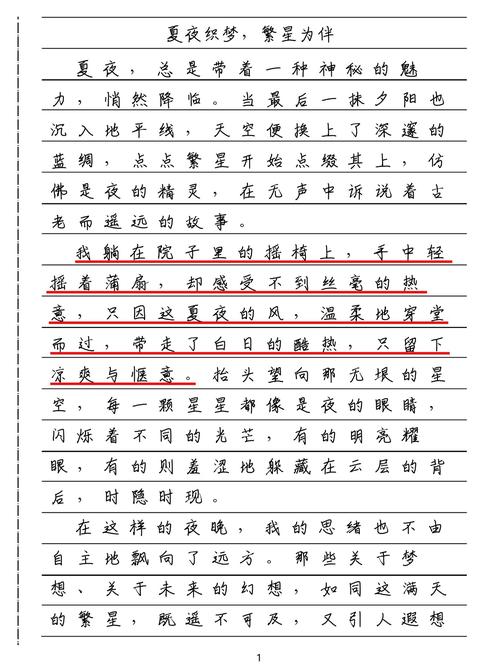 夏夜织梦，繁星为伴
夏夜，总是带着一种神秘的魅
力，悄然降临。当最后一抹夕阳也
沉入地平线，天空便换上了深邃的
蓝绸，点点繁星开始点缀其上，仿
佛是夜的精灵，在无声中诉说着古
老而遥远的故事。
我躺在院子里的摇椅上，手中轻
摇着蒲扇，却感受不到丝毫的热
意，只因这夏夜的风，温柔地穿堂
而过，带走了白日的酷热，只留下
凉爽与惬意。抬头望向那无垠的星
空，每一颗星星都像是夜的眼睛，
闪烁着不同的光芒，有的明亮耀
眼，有的则羞涩地躲藏在云层的背
后，时隐时现。
在这样的夜晚，我的思绪也不由
自主地飘向了远方。那些关于梦
想、关于未来的幻想，如同这满天
的繁星，既遥不可及，又引人遐想
1